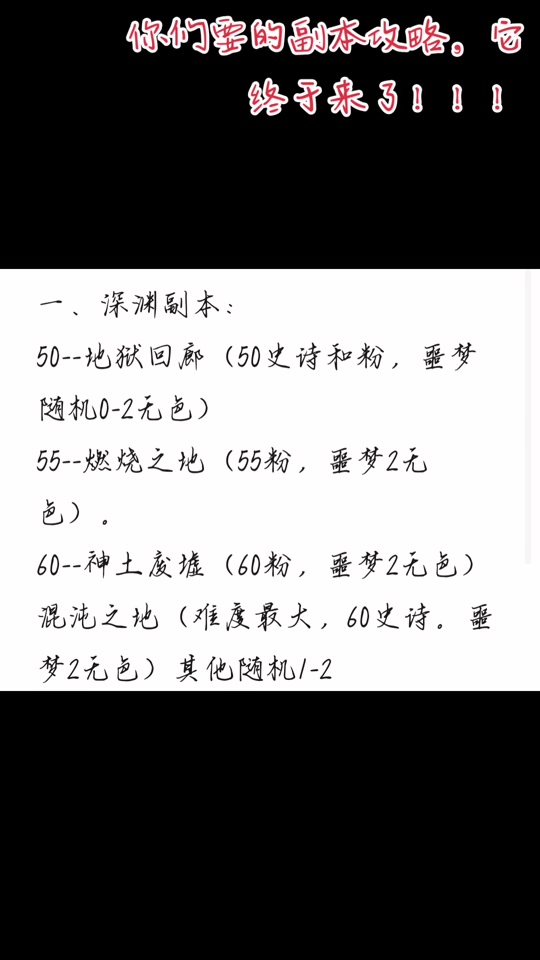 你们要的副本攻略，它
终于来了！！！
一、深渊副本：
50--地狱回廊（50史诗和粉，噩梦
随机0-2无色）
55--燃烧之地（55粉，噩梦2无
色）。
60--神土废墟（60粉，噩梦2无色）
混沌之地（难度最大，60史诗。噩
梦2无色）其他随机1-2